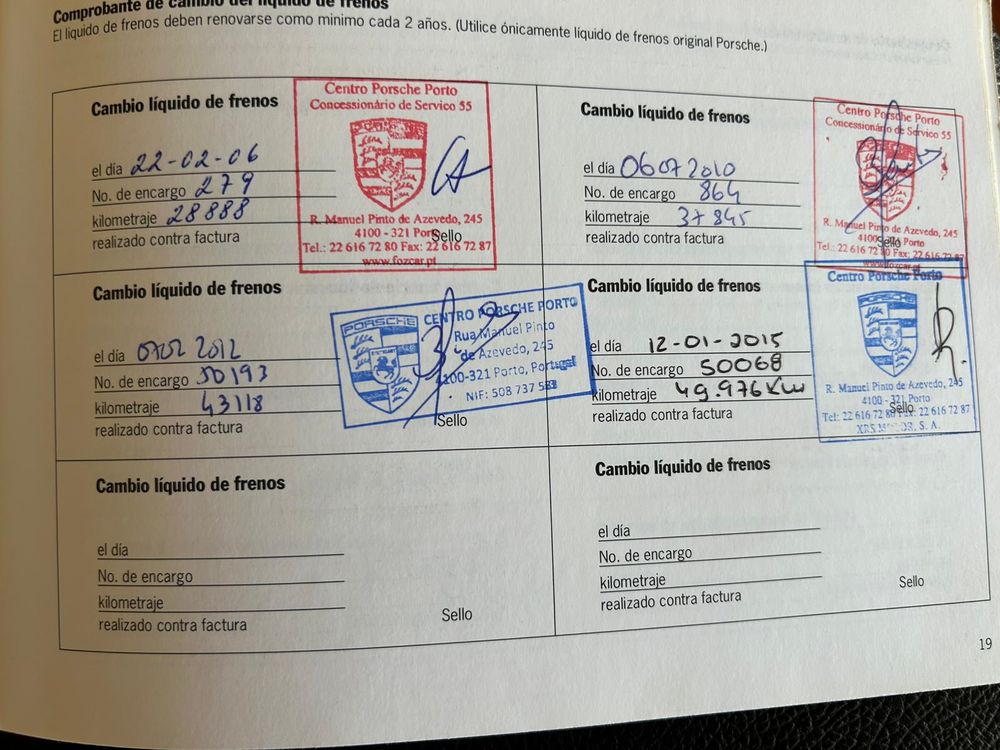 Comprobante de cambio del líquido de frenos
El líquido de frenos deben renovarse como minimo cada 2 años. (Utilice ónicamente líquido de frenos original Porsche.)
Cambio líquido de frenos
el día 22-02-06
No. de encargo 279
kilometraje 28888
realizado contra factura
Sello
Centro Porsche Porto
Concessionário de Servico 55
R. Manuel Pinto de Azevedo, 245
4100 - 321 Porto
Tel.: 22 616 72 80 Fax: 22 616 72 87
www.fozcar.pt
Cambio líquido de frenos
el día 06072010
No. de encargo 864
kilometraje 37845
realizado contra factura
Sello
Centro Porsche Porto
Concessionário de Servico 55
R. Manuel Pinto de Azevedo, 245
4100 - 321 Porto
Tel.: 22 616 72 80 Fax: 22 616 72 87
www.fozcar.pt
Cambio líquido de frenos
el día 0702 2012
No. de encargo 50193
kilometraje 43118
realizado contra factura
Sello
PORSCHE
CENTRO PORSCHE PORTO
Rua Manuel Pinto
de Azevedo, 245
4100-321 Porto, Portugal
NIF: 508 737 583
Cambio líquido de frenos
el día 12-01-2015
No. de encargo 50068
kilometraje 49.976Km
realizado contra factura
Sello
Centro Porsche Porto
R. Manuel Pinto de Azevedo, 245
4100 - 321 Porto
Tel: 22 616 72 80 Fax: 22 616 72 87
S. A.
Cambio líquido de frenos
el día
No. de encargo
kilometraje
realizado contra factura
Sello
Cambio líquido de frenos
el día
No. de encargo
kilometraje
realizado contra factura
Sello
19